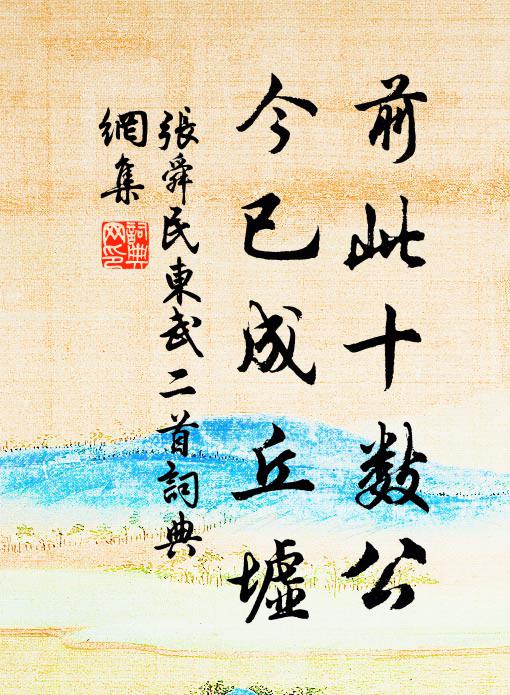 前此十数公
今已成丘墟
張舜民東武二首詞典
網集
詞典
网印